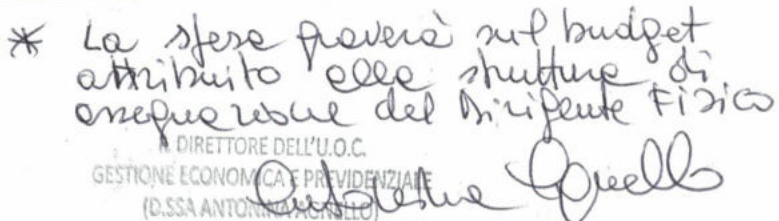 * La spesa graverà sul budget
attribuito alla struttura di
assegnazione del Dirigente Fisico
IL DIRETTORE DELL'U.O.C.
GESTIONE ECONOMICA E PREVIDENZIALE
(D.SSA ANTONINA AGNELLO)